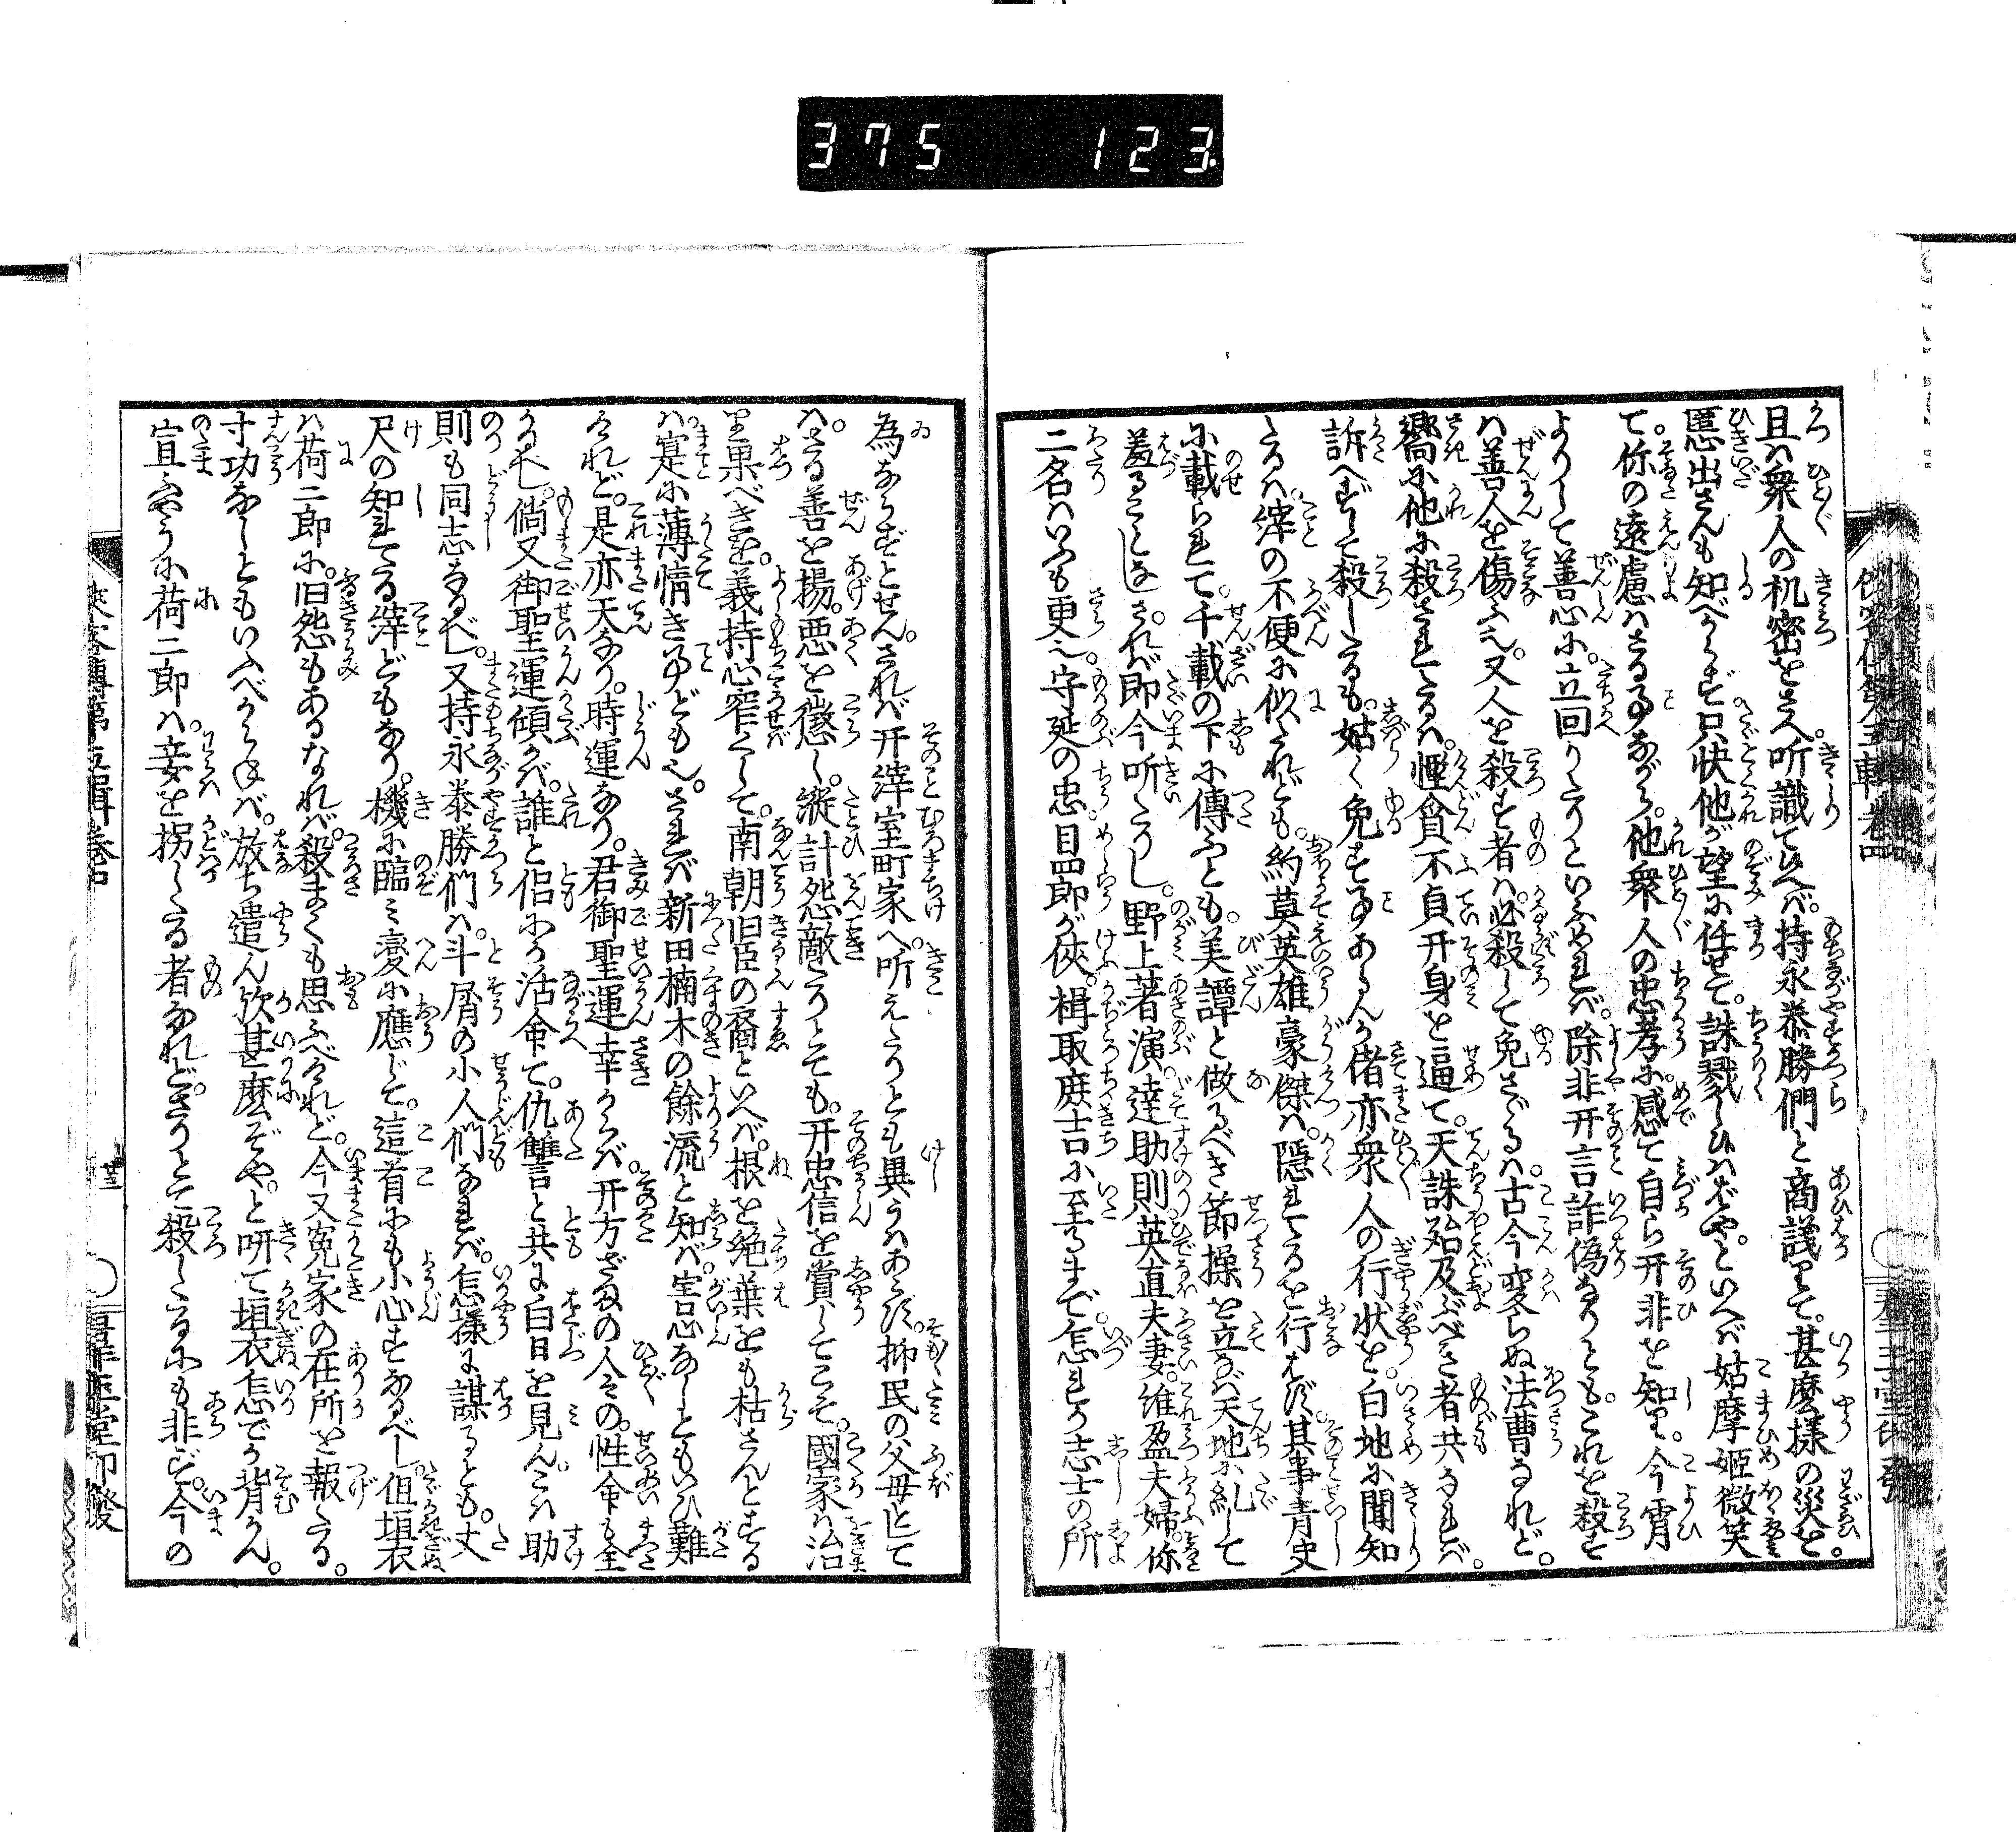 375 123
且ハ衆人の机密をさへ聴識てひへバ。持永泰勝們と商議りて。甚麼様の災を。
慝出さんも知べからず。只快他が望に任せて。誅戮しひハずや。といへバ姑摩姫微笑
て。你の遠慮ハさる事ながら。他衆人の忠孝に感て自ら开非を知り。今宵
よりして善心に。立回りたりといふなれバ。除非开言詐偽なりとも。これを殺す
ハ善人を傷ふ也。又人を殺す者ハ必殺して免さゞるハ。古今変らぬ法曹なれど。
嚮に他に殺されたるハ。慳貪不貞开身を逼て。天誅殆及ぶべき者共なれバ。
訴へずして殺したるも。姑く免す事あらんか。偖亦衆人の行状を。白地に聞知
たるハ。縡の不便に似たれども。約莫英雄豪傑ハ。隠れたるを行はず。其事青史
に載られて。千載の下に傳ふとも。美譚と做るべき節操を立なバ。天地に糺して
羞ることなし。されバ即今听たりし。野上著演。達助則英直夫妻。維盈夫婦。你
二名ハいふも更也。守延の忠。目四郎が侠。楫取庶吉に至るまで。怎れか志士の所
為ならずとせん。されバ开縡室町家へ。听えたりとも異うハあらず。抑民の父母として
ハ。さる善を揚。悪を懲し。縦計怨敵たりとても。开忠信を賞してこそ。國家ハ治
り果べきを。義持心窄くして。南朝旧臣の裔といへバ。根を絶葉をも枯さんとする
ハ。寔に薄情き事ども也。されバ新田楠木の餘流と知バ。害心なしともいひ難
けれど。是亦天なり。時運なり。君御聖運幸からバ。开方ざまの人々の。性命も全
かるべし。倘又御聖運傾かバ。誰と侶にか活命て。仇讐と共に白日を見ん。こハ助
則も同志なるべし。又持永泰勝們ハ。斗屑の小人們なれバ。怎様に謀るとも。丈
尺の知れたる縡どもなり。機に臨ミ変に應じて。這首にも小心すなるべし。伹垣衣
ハ荷二郎に。旧怨もあるなれバ。殺まくも思ふべけれど。今又寃家の在所を報たる。
寸功なしともいふべからねバ。放ち遣ん歟甚麼ぞや。と研て垣衣怎でか背かん。
宣ふやうに荷二郎ハ。妾を拐したる者なれど。さりとて殺したるにも非ず。今の
侠客傳第五輯巻四
廿三